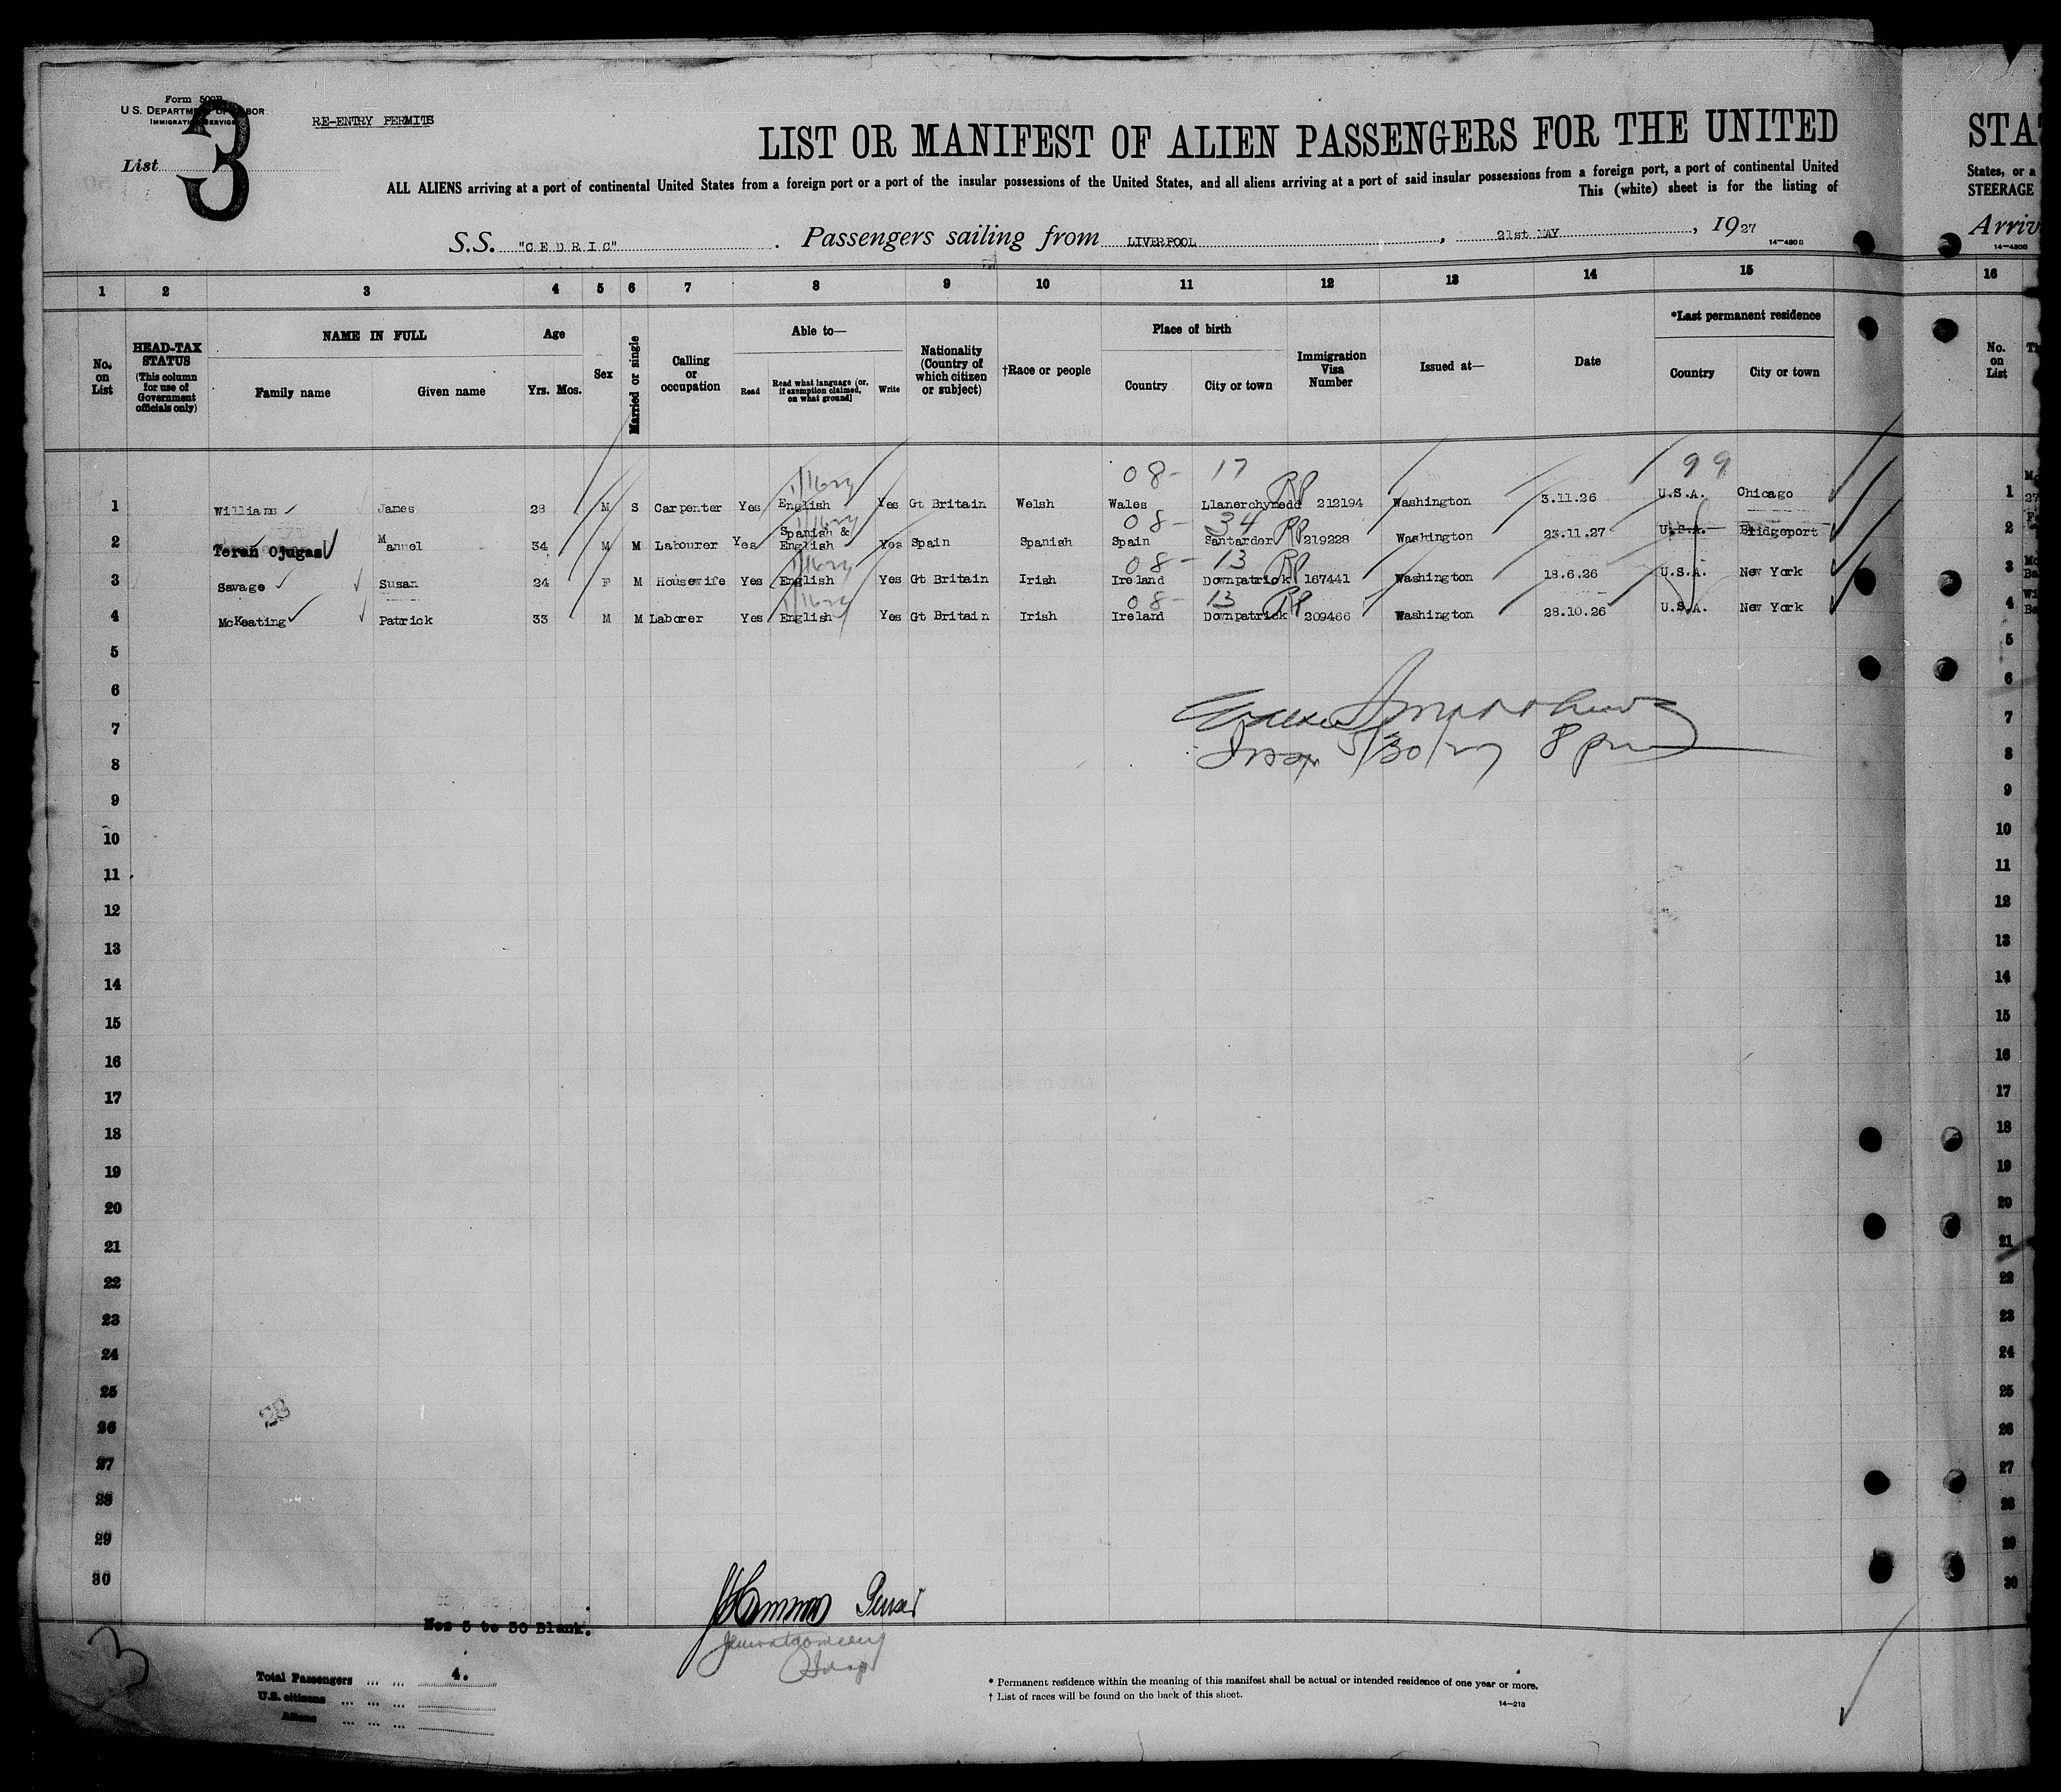 Form 500B
U.S. DEPARTMENT OF LABOR
IMMIGRATION SERVICE
RE-ENTRY PERMITS
List 3
LIST OR MANIFEST OF ALIEN PASSENGERS FOR THE UNITED
ALL ALIENS arriving at a port of continental United States from a foreign port or a port of the insular possessions of the United States, and all aliens arriving at a port of said insular possessions from a foreign port, a port of continental United
This (white) sheet is for the listing of
S.S. "CEDRIC". Passengers sailing from LIVERPOOL, 21st MAY, 1927
14-430B
STA
States, or a
STEERAGE
Arriv
14-430B
1 2 3 4 5 6 7 8 9 10 11 12 13 14 15 16
No. on List
HEAD-TAX STATUS (This column for use of Government officials only)
NAME IN FULL
Family name Given name
Age
Yrs. Mos.
Sex
Married or single
Calling or occupation
Able to—
Read Read what language (or, if exemption claimed, on what ground) Write
Nationality (Country of which citizen or subject)
†Race or people
Place of birth
Country City or town
Immigration Visa Number
Issued at—
Date
*Last permanent residence
Country City or town
No. on List
08- 17 99
1 Williams James 28 M S Carpenter Yes English Yes Gt Britain Welsh Wales Llanerchymedd RP 212194 Washington 3.11.26 U.S.A. Chicago 1
08- 34
2 Teran Ojugas Manuel 34 M M Labourer Yes Spanish & English Yes Spain Spanish Spain Santander RP 219228 Washington 23.11.27 U.S.A. Bridgeport 2
08- 13
3 Savage Susan 24 F M Housewife Yes English Yes Gt Britain Irish Ireland Downpatrick RP 167441 Washington 18.6.26 U.S.A. New York 3
08- 13
4 McKeating Patrick 33 M M Laborer Yes English Yes Gt Britain Irish Ireland Downpatrick RP 209466 Washington 28.10.26 U.S.A. New York 4
5 5
6 6
7 7
5/30/27 8 pm
8 8
9 9
10 10
11 11
12 12
13 13
14 14
15 15
16 16
17 17
18 18
19 19
20 20
21 21
22 22
23 23
24 24
25 25
28
26 26
27 27
28 28
29 29
30 30
Purser
Nos 5 to 30 Blank.
3
Total Passengers ... ... 4.
U.S. citizens ... ... ...
Aliens ... ... ...
* Permanent residence within the meaning of this manifest shall be actual or intended residence of one year or more.
† List of races will be found on the back of this sheet.
14-218